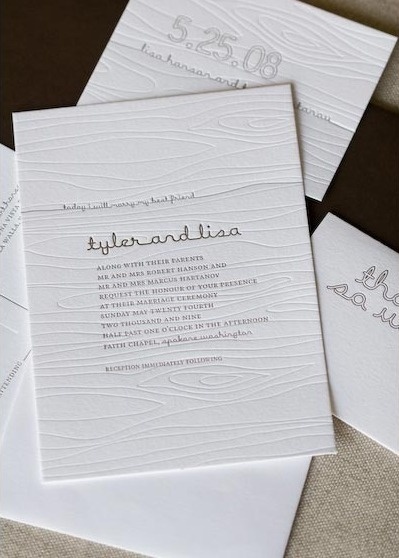 5.25.08
lisa hanson and
today i will marry my best friend
tyler and lisa
ALONG WITH THEIR PARENTS
MR AND MRS ROBERT HANSON AND
MR AND MRS MARCUS HARTANOV
REQUEST THE HONOUR OF YOUR PRESENCE
AT THEIR MARRIAGE CEREMONY
SUNDAY MAY TWENTY FOURTH
TWO THOUSAND AND NINE
HALF PAST ONE O'CLOCK IN THE AFTERNOON
FAITH CHAPEL, spokane washington
RECEPTION IMMEDIATELY FOLLOWING
so